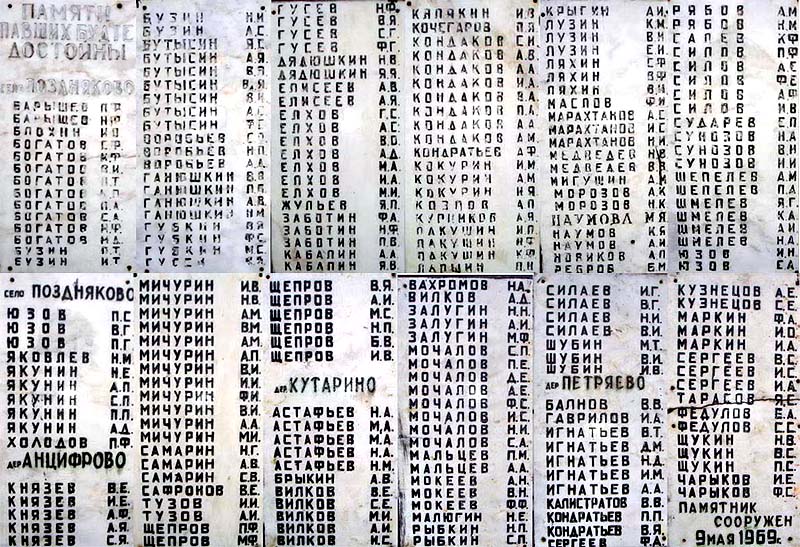 ПАМЯТИ
ПАВШИХ БУДТЕ
ДОСТОЙНЫ
СЕЛО ПОЗДНЯКОВО
БАРЫШЕВ П.Ф.
БАРЫШЕВ Н.Ф.
БЛОХИН И.О.
БОГАТОВ С.Ф.
БОГАТОВ К.Ф.
БОГАТОВ В.И.
БОГАТОВ
БОГАТОВ П.Т.
БОГАТОВ
БОГАТОВ С.А.
БОГАТОВ Н.И.
БОГАТОВ
БУЗИН П.Т.
БУЗИН И.Т.
БУЗИН Н.И.
БУЗИН И.С.
БУТЫСИН А.С.
БУТЫСИН В.А.
БУТЫСИН В.П.
БУТЫСИН
БУТЫСИН В.И.
БУТЫСИН А.П.
БУТЫСИН
ВОРОБЬЕВ С.С.
ВОРОБЬЕВ Н.П.
ВОРОБЬЕВ А.А.
ГАНЮШКИН В.В.
ГАНЮШКИН П.П.
ГАНЮШКИН Д.А.
ГАНЮШКИН Н.М.
ГУБКИН
ГУБКИН Ф.С.
ГУСЕВ
ГУСЕВ Н.Ф.
ГУСЕВ В.Я.
ГУСЕВ С.Г.
ГУСЕВ С.Ф.
ДЯДЮШКИН Н.В.
ДЯДЮШКИН Я.Я.
ЕЛИСЕЕВ А.В.
ЕЛИСЕЕВ А.Я.
ЕЛХОВ Г.С.
ЕЛХОВ В.С.
ЕЛХОВ В.О.
ЕЛХОВ А.Д.
ЕЛХОВ И.А.
ЕЛХОВ М.И.
ЖУЛЬЕВ Я.П.
ЗАБОТИН Ф.А.
ЗАБОТИН И.Ф.
ЗАБОТИН П.В.
КАБАЛИН А.В.
КАЛЯКИН И.В.
КОЧЕГАРОВ П.А.
КОНДАКОВ С.И.
КОНДАКОВ В.И.
КОНДАКОВ
КОНДАКОВ И.А.
КОНДАКОВ В.А.
КОНДАКОВ А.А.
КОНДАКОВ П.А.
КОНДАКОВ А.И.
КОНДРАТЬЕВ А.Ф.
КОКУРИН И.И.
КОКУРИН М.И.
КОКУРИН Н.Я.
КОЗЛОВ А.П.
КУРНИКОВ А.Я.
ЛАКУШИН П.Г.
ЛАКУШИН И.Ф.
ЛАКШИН П.Н.
ЛАПШИН П.В.
КРЫГИН А.И.
ЛУЗИН К.М.
ЛУЗИН И.М.
ЛЯХИН В.И.
ЛЯХИН Б.Ф.
ЛЯХИН В.В.
МАСЛОВ Ф.И.
МАРАХТАНОВ И.С.
МАРАХТАНОВ А.С.
МАРАХТАНОВ И.С.
МЕДВЕДЕВ Н.В.
МЕДВЕДЕВ В.И.
МИГУШИН А.И.
МОРОЗОВ Н.К.
МОРОЗОВ Н.И.
НАУМОВА М.Я.
НАУМОВ К.Я.
НАУМОВ А.И.
НОВИКОВ А.П.
РЕБРОВ Б.М.
РЯБОВ А.М.
РЯБОВ Н.И.
САЛЕВ И.Ф.
САЛЕВ А.Ф.
СИЛОВ Н.И.
СИЛОВ А.Ф.
СИЛОВ И.В.
СИЛОВ И.В.
СУДАРЕВ С.П.
СУНОЗОВ Н.А.
СУНОЗОВ В.А.
ШЕПЕЛЕВ А.Д.
ШЕПЕЛЕВ П.А.
ШМЕЛЕВ Г.А.
ШМЕЛЕВ К.А.
ШМЕЛЕВ Н.А.
ЮЗОВ И.Ф.
ЮЗОВ С.И.
СЕЛО ПОЗДНЯКОВО
ЮЗОВ П.С.
ЮЗОВ В.Г.
ЮЗОВ П.Г.
ЯКОВЛЕВ Н.М.
ЯКУНИН Н.Е.
ЯКУНИН А.П.
ЯКУНИН С.П.
ЯКУНИН П.П.
ЯКУНИН А.Д.
ХОЛОДОВ П.Ф.
ДЕР АНЦИФРОВО
КНЯЗЕВ В.Е.
КНЯЗЕВ И.Е.
КНЯЗЕВ А.Ф.
КНЯЗЕВ А.Я.
КНЯЗЕВ С.Я.
МИЧУРИН И.В.
МИЧУРИН Н.В.
МИЧУРИН В.М.
МИЧУРИН А.М.
МИЧУРИН В.М.
МИЧУРИН А.П.
МИЧУРИН В.И.
МИЧУРИН И.И.
МИЧУРИН Ф.И.
МИЧУРИН А.С.
МИЧУРИН М.И.
САМАРИН Н.Г.
САМАРИН А.В.
САМАРИН С.В.
САФРОНОВ В.Е.
ТУЗОВ И.И.
ТУЗОВ А.И.
ЩЕПРОВ П.Ф.
ЩЕПРОВ М.Ф.
ЩЕПРОВ В.Я.
ЩЕПРОВ А.И.
ЩЕПРОВ М.С.
ЩЕПРОВ Н.П.
ЩЕПРОВ П.П.
ЩЕПРОВ Б.В.
ДЕР КУТАРИНО
АСТАФЬЕВ Н.А.
АСТАФЬЕВ М.А.
АСТАФЬЕВ И.А.
АСТАФЬЕВ Н.А.
АСТАФЬЕВ Н.М.
БРЫКИН А.В.
ВИЛКОВ В.Е.
ВИЛКОВ С.Е.
ВИЛКОВ И.Д.
ВИЛКОВ А.И.
ВАХРОМОВ Н.А.
ВИЛКОВ А.Д.
ЗАЛУГИН И.Н.
ЗАЛУГИН М.Н.
ЗАЛУГИН М.Ф.
МОЧАЛОВ С.П.
МОЧАЛОВ П.Е.
МОЧАЛОВ Д.Е.
МОЧАЛОВ А.Е.
МОЧАЛОВ Ф.С.
МОЧАЛОВ И.С.
МОЧАЛОВ Н.С.
МОЧАЛОВ С.А.
МАЛЬЦЕВ П.М.
МАЛЬЦЕВ А.А.
МОКЕЕВ Н.Ф.
МОКЕЕВ Ф.Ф.
МАЛЮГИН Н.Е.
РЫБКИН Н.П.
РЫБКИН С.П.
СИЛАЕВ И.Г.
СИЛАЕВ В.Г.
СИЛАЕВ Н.И.
СИЛАЕВ В.И.
ШУБИН М.Т.
ШУБИН В.И.
ШУБИН И.В.
ДЕР ПЕТРЯЕВО
БАЛНОВ В.В.
ГАВРИЛОВ И.А.
ИГНАТЬЕВ В.Т.
ИГНАТЬЕВ Д.М.
ИГНАТЬЕВ И.М.
ИГНАТЬЕВ И.А.
ИГНАТЬЕВ А.А.
КАЛИСТРАТОВ В.В.
КОНДРАТЬЕВ П.П.
КОНДРАТЬЕВ В.Я.
СЕРГЕЕВ Ф.А.
КУЗНЕЦОВ А.Е.
КУЗНЕЦОВ С.Е.
МАРКИН Ф.А.
МАРКИН И.О.
МАРКИН И.М.
СЕРГЕЕВ В.С.
СЕРГЕЕВ И.И.
СЕРГЕЕВ И.А.
ТАРАСОВ Я.С.
ФЕДУЛОВ Б.А.
ФЕДУЛОВ С.С.
ЩУКИН Н.В.
ЩУКИН В.С.
ЩУКИН П.П.
ЧАРЫКОВ И.Е.
ЧАРЫКОВ Ф.Е.
ПАМЯТНИК
СООРУЖЕН
9 МАЯ 1969г.